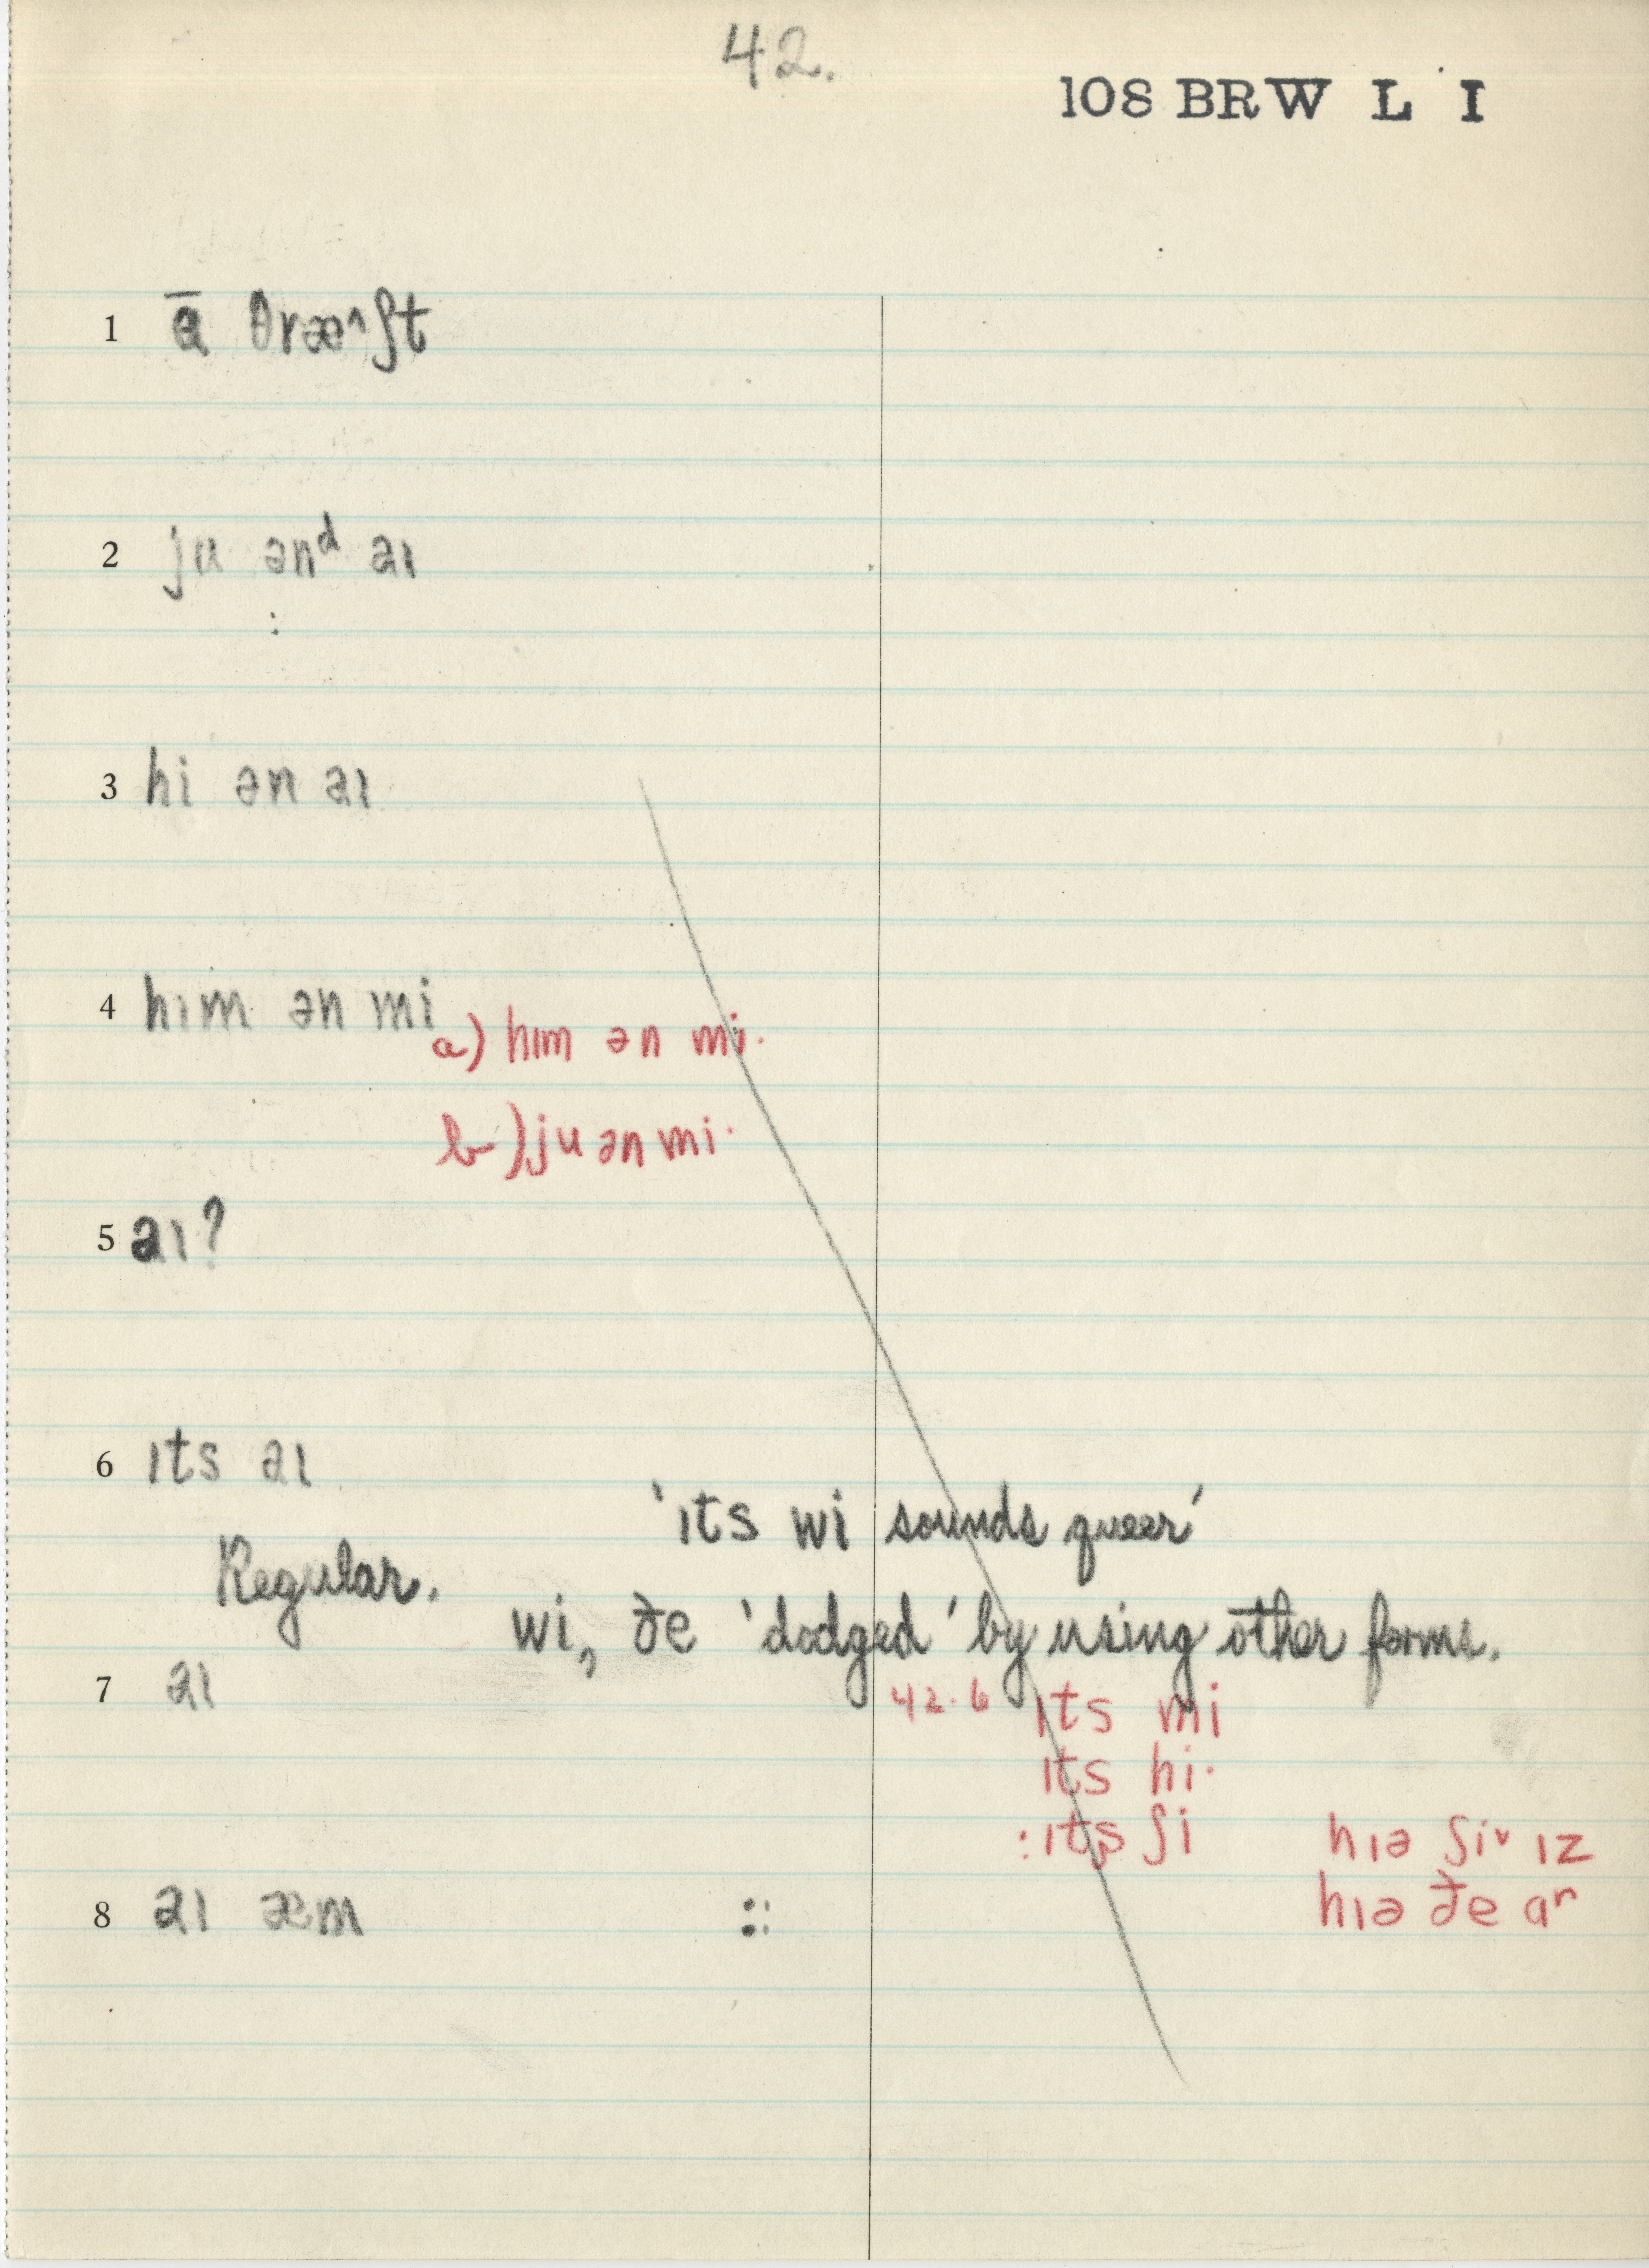 42.
108 BRW L I
1 θræ^ʃt
2 ju ənᵈ aɪ
:
3 hi ən aɪ
4 hɪm ən mi
a) hɪm ən mi·
b) ju ən mi·
5 aɪ?
6 ɪts aɪ
'ɪts wi sounds queer'
Regular.
wi, ðe 'dodged' by using other forms.
7 aɪ
42.6 ɪts mi
ɪts hi·
:ɪts ʃi
hɪə ʃiᵛ ɪz
8 aɪ æm ::
hɪə ðe aʳ